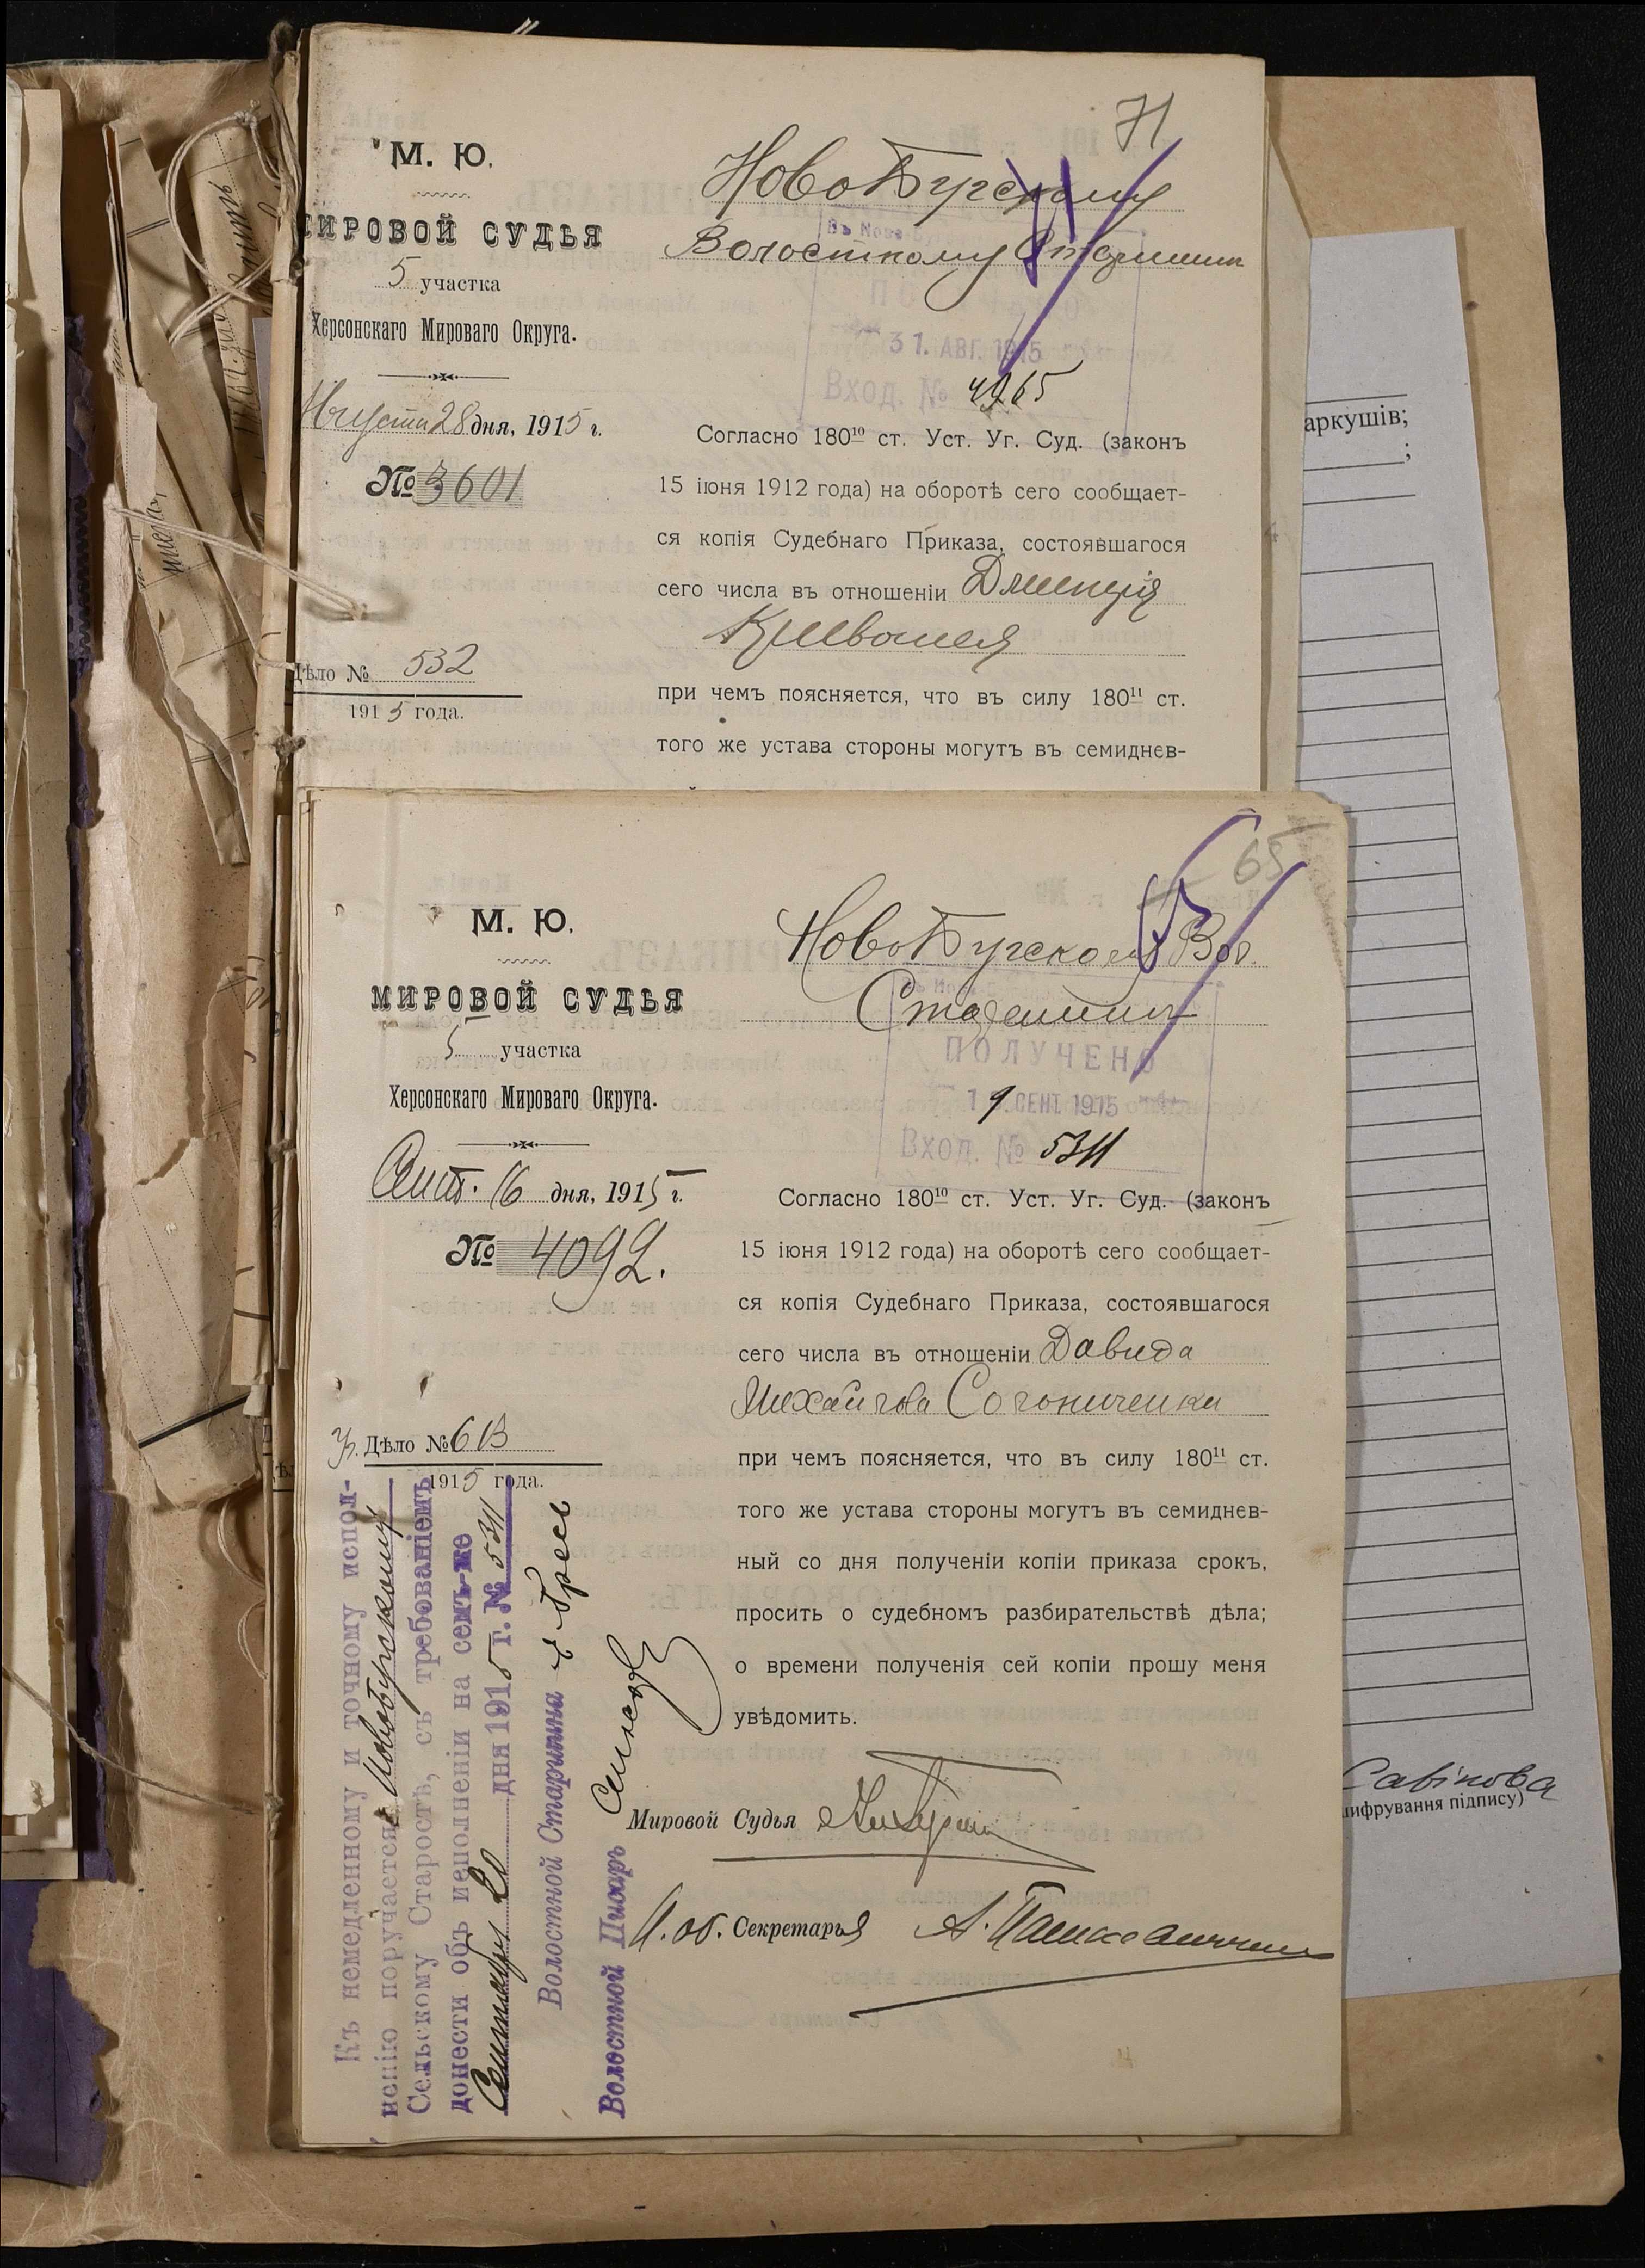 71
М. Ю.
МИРОВОЙ СУДЬЯ
5 участка
Херсонскаго Мироваго Округа.
Августа 28 дня, 1915 г.
№ 3601
Дѣло № 532
1915 года.
НовоБугскому
Волостному Старшинѣ
31. АВГ. 1915
Вход. № 4965
Согласно 180¹⁰ ст. Уст. Уг. Суд. (законъ
15 іюня 1912 года) на оборотѣ сего сообщает-
ся копія Судебнаго Приказа, состоявшагося
сего числа въ отношеніи Дмитрія
при чемъ поясняется, что въ силу 180¹¹ ст.
того же устава стороны могутъ въ семиднев-
65
М. Ю.
МИРОВОЙ СУДЬЯ
5 участка
Херсонскаго Мироваго Округа.
Сент. 16 дня, 1915 г.
№ 4092.
Дѣло № 613
1915 года.
НовоБугскому Вол.
Старшинѣ
ПОЛУЧЕНО
19 СЕНТ. 1915
Вход. № 5311
Согласно 180¹⁰ ст. Уст. Уг. Суд. (законъ
15 іюня 1912 года) на оборотѣ сего сообщает-
ся копія Судебнаго Приказа, состоявшагося
сего числа въ отношеніи Давида
Михайлова Солониченки
при чемъ поясняется, что въ силу 180¹¹ ст.
того же устава стороны могутъ въ семиднев-
ный со дня полученіи копіи приказа срокъ,
просить о судебномъ разбирательствѣ дѣла;
о времени полученія сей копіи прошу меня
увѣдомить.
Мировой Судья
И. об. Секретаря
Къ немедленному и точному испол-
ненію поручается Новобугскому
Сельскому Старостѣ, съ требованіемъ
донести объ исполненіи на семъ-же
Сентября 20 дня 1915 г. № 5311
Волостной Старшина
Волостной Писарь
аркушів;
;
Савінова
шифрування підпису)